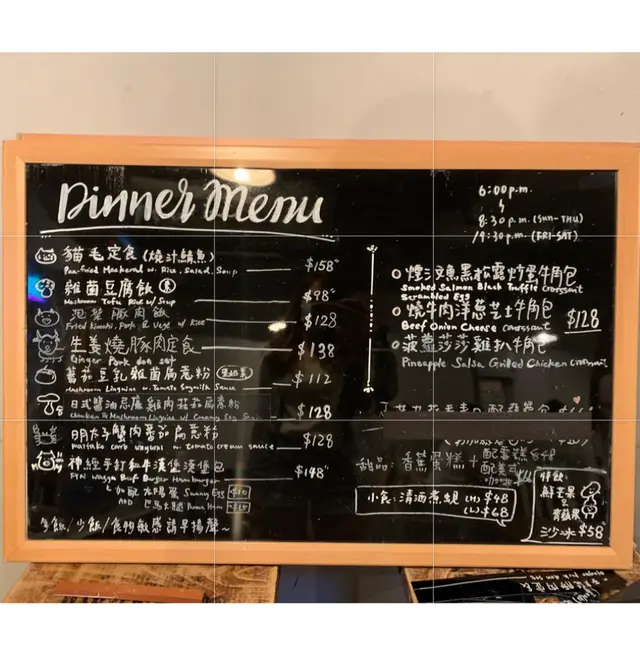 Dinner Menu
6:00 p.m.
8:30 p.m. (SUN-THU)
9:30 p.m. (FRI-SAT)
貓毛定食 (燒汁鯖魚) $158
Pan-fried Mackerel w. Rice, Salad, Soup
雜菌豆腐飯 $98
Mushroom Tofu Rice w/ Soup
泡菜豚肉飯 $128
Fried Kimchi, Pork & Vege w/ Rice
生姜燒豚肉定食 $138
Ginger Pork don set
蕃茄豆乳雜菌扁意粉 $112
Mushroom Linguine w. Tomato Soymilk Sauce
日式醬油忌廉雞肉菇菇扁意粉 $128
Chicken & Mushroom Linguine w/ Creamy Soy Sauce
明太子蟹肉蕃茄扁意粉 $128
w. tomato cream sauce
神經手打和牛漢堡漢堡包 $148
Beef Burger Hamburger
加配太陽蛋 Sunny Egg $10
ADD 巴馬火腿 Parma Ham
多飯/少飯/食物敏感請早揚聲~
煙三文魚黑松露炒蛋牛角包
Smoked Salmon Black Truffle Croissant
Scrambled Egg
燒牛肉洋葱芝士牛角包 $128
Beef Onion Cheese Croissant
菠蘿莎莎雞扒牛角包
Pineapple Salsa Grilled Chicken Croissant
甜品: 香蕉蛋糕 +
小食: 清酒煮蜆 (M) $48
(L) $68
特飲:
鮮芒果
青蘋果
沙冰 $58